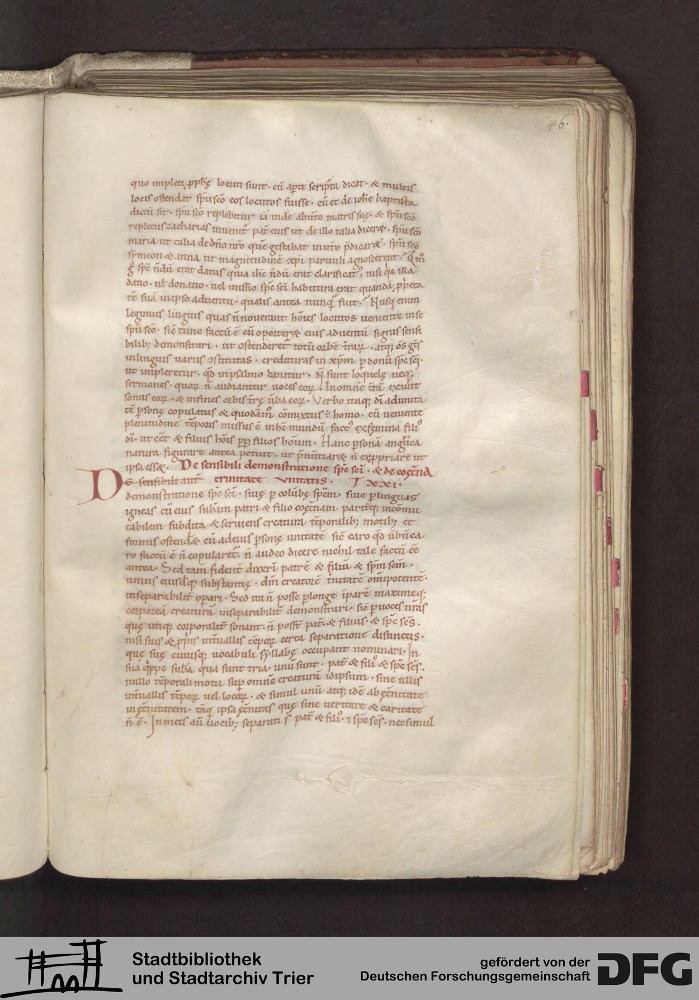 46.
quo impleti ꝓphę locuti sunt. cū apte scripta dicat. & multis
locis ostendat spūscō eos locutos fuisse. cū et de iohe baptista
dictū sit. spūscō replebitur iā inde ab utero matris suę. & spūscō
repletus zacharias inuenit pat ei us ut de illo talia dicerꝫ. spūscō
maria ut talia de dño nr̄o quē gestabat in utero p̄dicarꝫ. spūscō
symeon & anna ut magnitudinē xp̄i paruuli agnoscerent. Qm̄
g spc̄ n̄dū erat datus quia ihc n̄dū erat clarificat. nisi qa illa
datio. ul donatio. uel missio spc̄ sci habitura erat quandā ꝓpeta
tē suā in ipso aduentu. qualis antea nunq̄ fuit. Nusq̄ enim
legimus linguis quas n̄ nouerant hoīes locutos ueniente in se
spūscō. sic tunc factū ē cū oporterꝫ eius aduentū signis sensi
bilibꝫ demonstrari. ut ostenderet totū orbē trarꝫ. atqꝫ oēs gēs
in linguis uariis cstitutas. credituras in xpm p donū spc̄ sci.
ut impleretur. qd in psalmo canitur. N̄ sunt loquelę neqꝫ
sermones. quoꝝ n̄ audiantur uoces eoꝝ. In omnē trā exiuit
sonus eoꝝ. & in fines orbis trę uba eoꝝ. Verbo itaqꝫ dī ad unita
tē psonę copulatus & quodam̄ cōmixtus ē homo. cū ueniente
plenitudine tēporis missus ē in hc mundū fact ex femina fili
dī. ut eēt & filius hoīs ꝓp filios hoīum. Hanc psonā anglica
natura figurare antea potuit. ut p̄nuntiarꝫ n̄ expropriare ut
ipsa essꝫ. De sensibili demonstratione spc̄ sci. & de coętna
De sensibili aut̄ trinitate unitatis. XXI.
demonstratione spc̄ sci. siue p colūbę spēm. siue p linguas
igneas cū ei subam patri & filio coęt̄nam pariterqꝫ incōmu
tabilem subdita & seruiens creatura tēporalibꝫ motibꝫ et
formis ostendꝫ cū ad eius psonę unitatē sic caro qd ūbū ca
ro factū ē n̄ copularet. n̄ audeo dicere nichil tale factū eē
antea. Sed tam fident dixeri patrē & filiū & spm scm̄.
unius eiusdēqꝫ substantię. dm̄ creatorē t̄nitatē omipotentē.
inseparabilit opari. Sed ita n̄ posse p longe īparē maximeqꝫ
corporeā creaturā inseparabilit demonstrari. sic p uoces nr̄as
quę utiqꝫ corporalit sonant. n̄ posst pat & filius & spc̄ scs.
nisi suis & ppis int̄uallis tēporꝫ certa separatione distinctis.
quę suę cuiusqꝫ uocabuli syllabę occupant nominari. In
sua q̄ppe suba qua sunt tria unū sunt. pat & fili & spc̄ scs.
nullo tēporali motu sup omnē creaturā id ipsum. sine ullis
int̄uallis tēporꝫ uel locoꝝ. & simul unū atqꝫ idē ab ęt̄nitate
in ęt̄nitatem. tāq ipsa ęt̄nitas quę sine ueritate & caritate
n̄ ē. In meis aū uocibꝫ separati s pat & fili. & spc̄ scs. nec simul
Stadtbibliothek
und Stadtarchiv Trier
gefördert von der
Deutschen Forschungsgemeinschaft
DFG